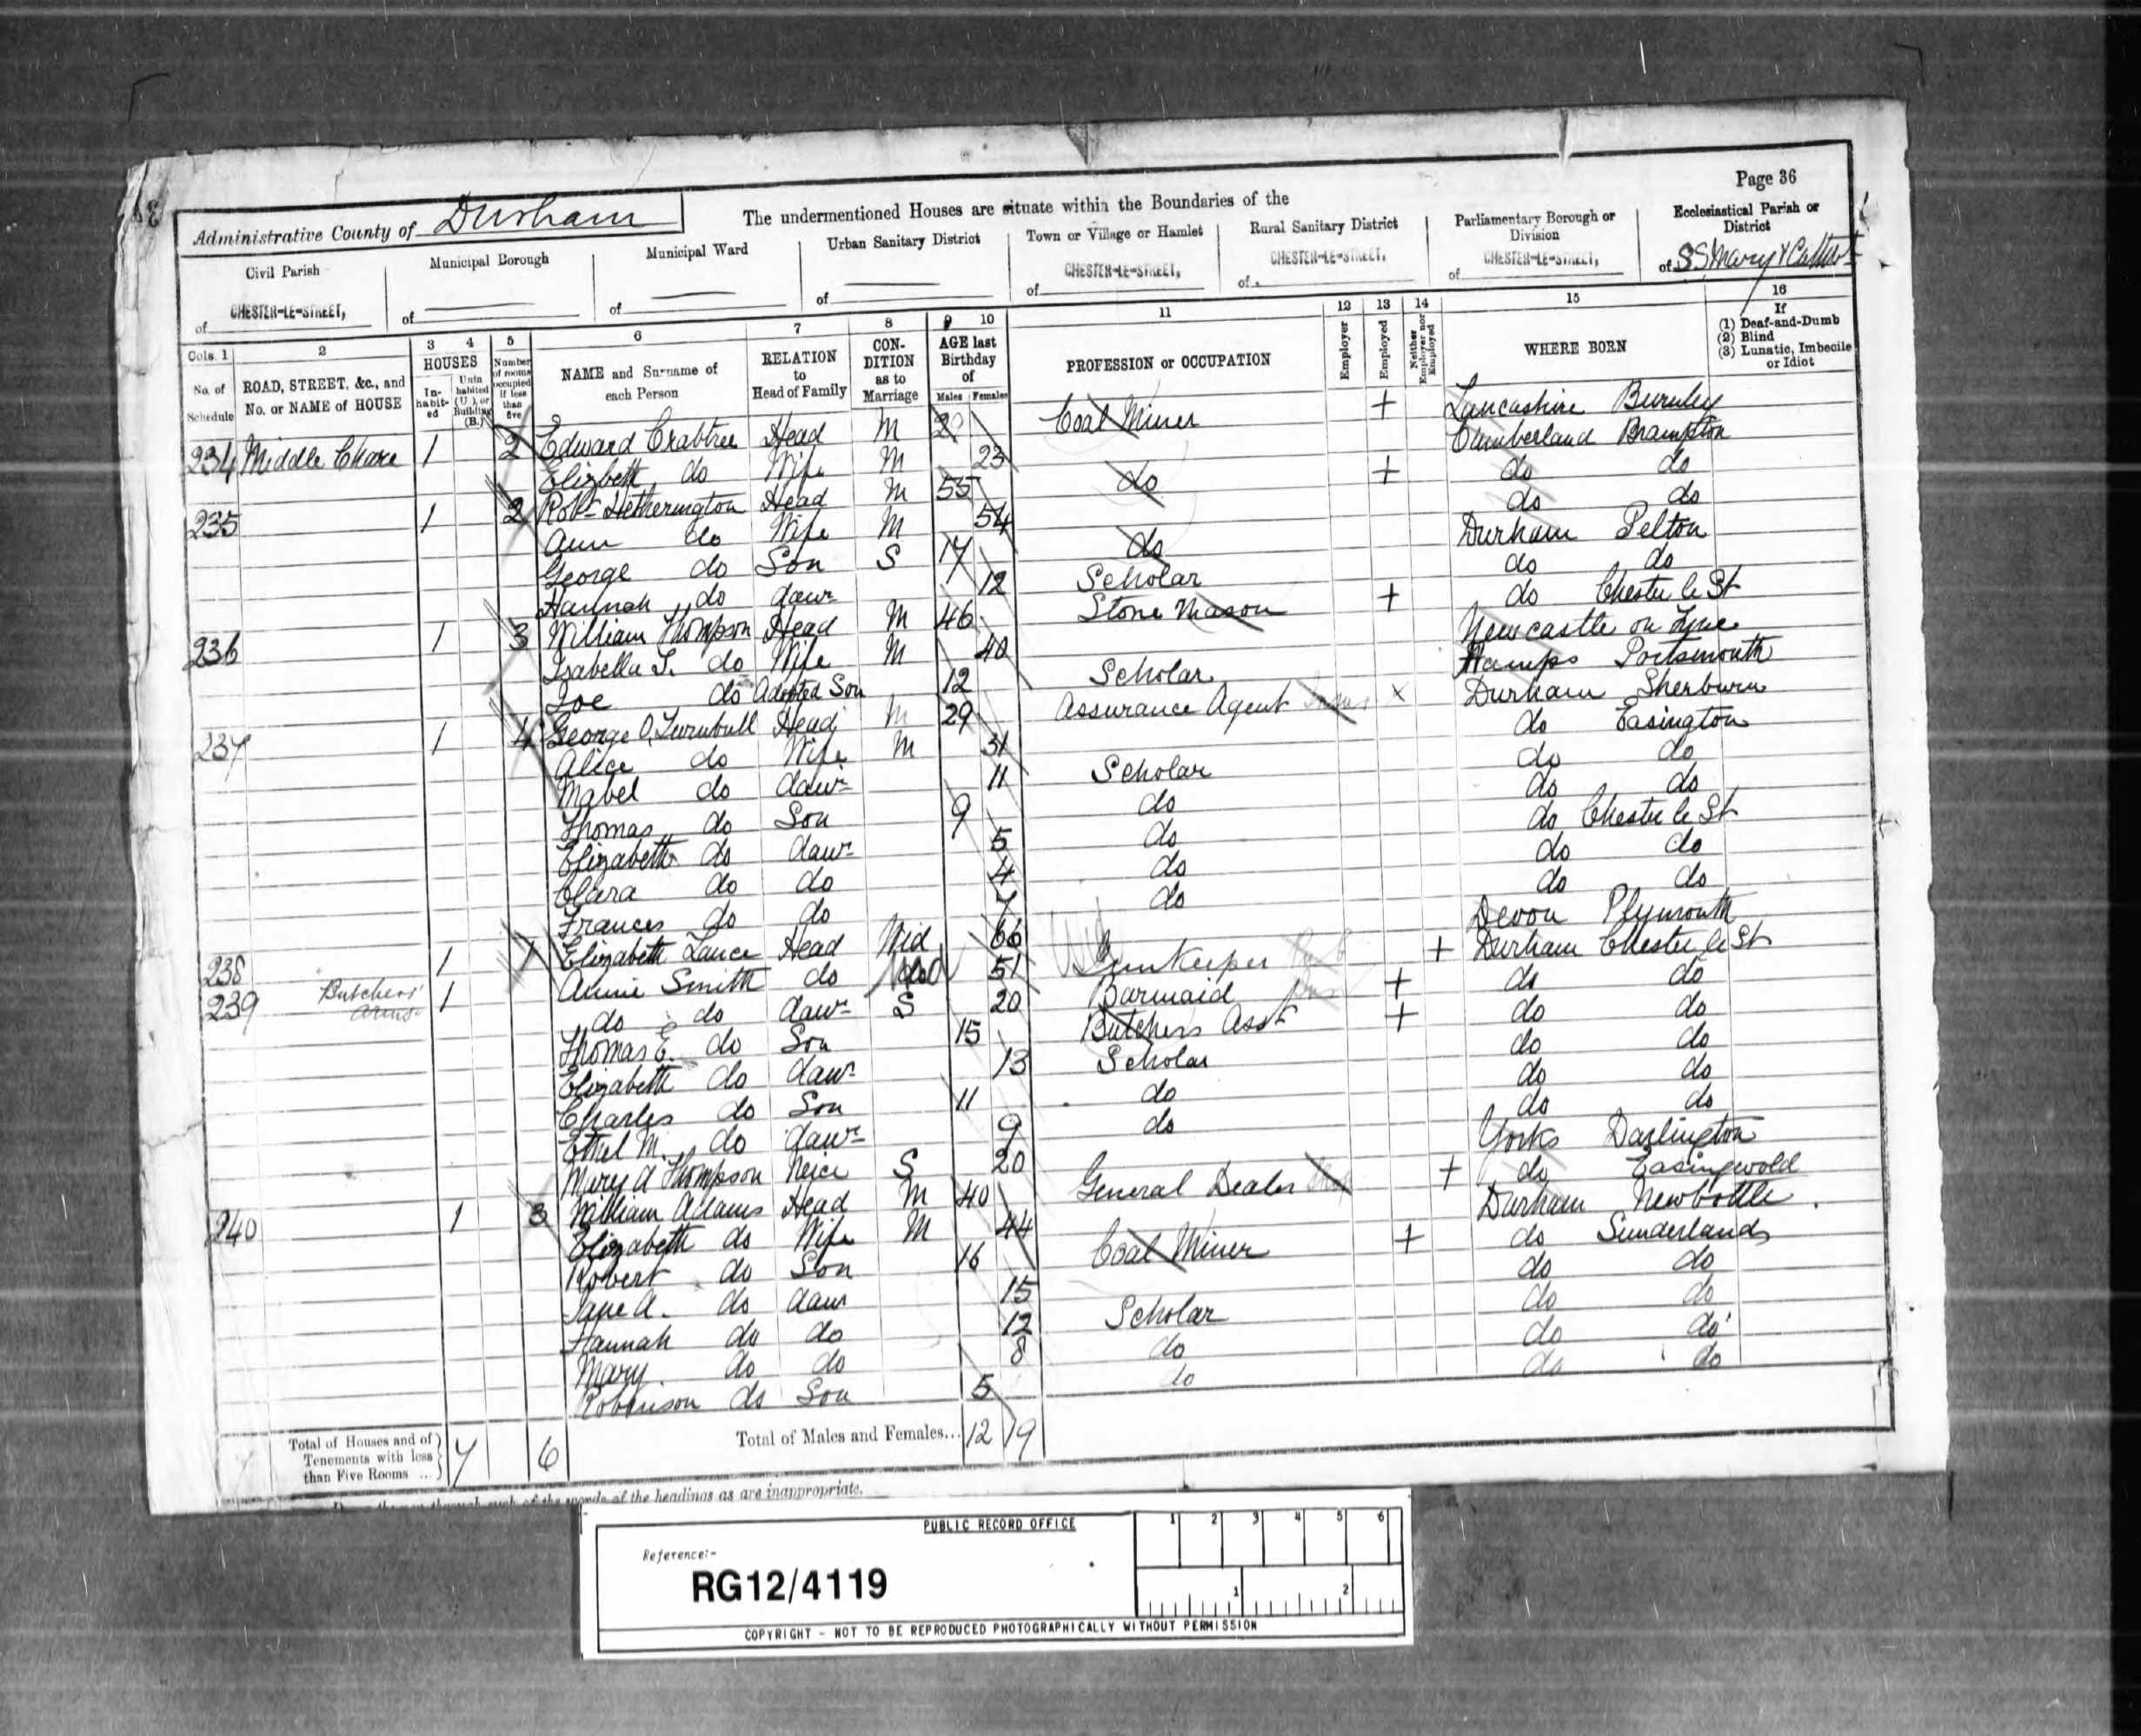 Page 36
Administrative County of Durham
The undermentioned Houses are situate within the Boundaries of the
Civil Parish
of CHESTER-LE-STREET,
Municipal Borough
of
Municipal Ward
of
Urban Sanitary District
of
Town or Village or Hamlet
of CHESTER-LE-STREET,
Rural Sanitary District
of CHESTER-LE-STREET,
Parliamentary Borough or Division
of CHESTER-LE-STREET,
Ecclesiastical Parish or District
of SS Mary & Cuthbt
Cols. 1 2 3 4 5 6 7 8 9 10 11 12 13 14 15 16
No. of Schedule
ROAD, STREET, &c., and No. or NAME of HOUSE
HOUSES
In-habit-ed
Unin habited (U.), or Building (B.)
Number of rooms occupied if less than five
NAME and Surname of each Person
RELATION to Head of Family
CON-DITION as to Marriage
AGE last Birthday of
Males Females
PROFESSION or OCCUPATION
Employer
Employed
Neither Employer nor Employed
WHERE BORN
If
(1) Deaf-and-Dumb
(2) Blind
(3) Lunatic, Imbecile or Idiot
234 Middle Chare 1 2 Edward Crabtree Head M Coal Miner + Lancashire Burnley
Elizbeth do Wife M 23 Cumberland Brampton
235 1 2 Robt Hetherington Head M 55 do + do do
Ann do Wife M 54 do do
George do Son S 17 do Durham Pelton
Hannah do dawr 12 Scholar do do
236 1 3 William Thompson Head M 46 Stone Mason + do Chester le St
Isabella S. do Wife M 40 Newcastle on Tyne
Joe do Adopted Son 12 Scholar Hamps Portsmouth
237 1 4 George O. Turnbull Head M 29 Assurance Agent x Durham Sherburn
Alice do Wife M 31 do Easington
Mabel do dawr 11 Scholar do do
Thomas do Son 9 do do do
Elizabeth do dawr 5 do do Chester le St
Clara do do 4 do do do
Frances do do do do do
238 1 1 Elizabeth Lance Head Wid 66 Devon Plymouth
239 Butchers' Arms 1 Annie Smith do do 51 Innkeeper + Durham Chester le St
do do dawr S 20 Barmaid + do do
Thomas E. do Son 15 Butchers Asst + do do
Elizabeth do dawr 13 Scholar do do
Charles do Son 11 do do do
Ethel M. do dawr 9 do do do
Mary A Thompson Neice S 20 Yorks Darlington
240 1 3 William Adams Head M 40 General Dealer + do Easingwold
Elizabeth do Wife M 44 Durham Newbottle
Robert do Son 16 Coal Miner + do Sunderland
Jane A. do dawr 15 do do
Hannah do do 12 Scholar do do
Mary do do 8 do do do
Robinson do Son 5 do do do
Total of Houses and of Tenements with less than Five Rooms ... 7 6
Total of Males and Females... 12 19
of the words of the headings as are inappropriate.
PUBLIC RECORD OFFICE
1 2 3 4 5 6
Reference:-
RG12/4119
1 2
COPYRIGHT - NOT TO BE REPRODUCED PHOTOGRAPHICALLY WITHOUT PERMISSION